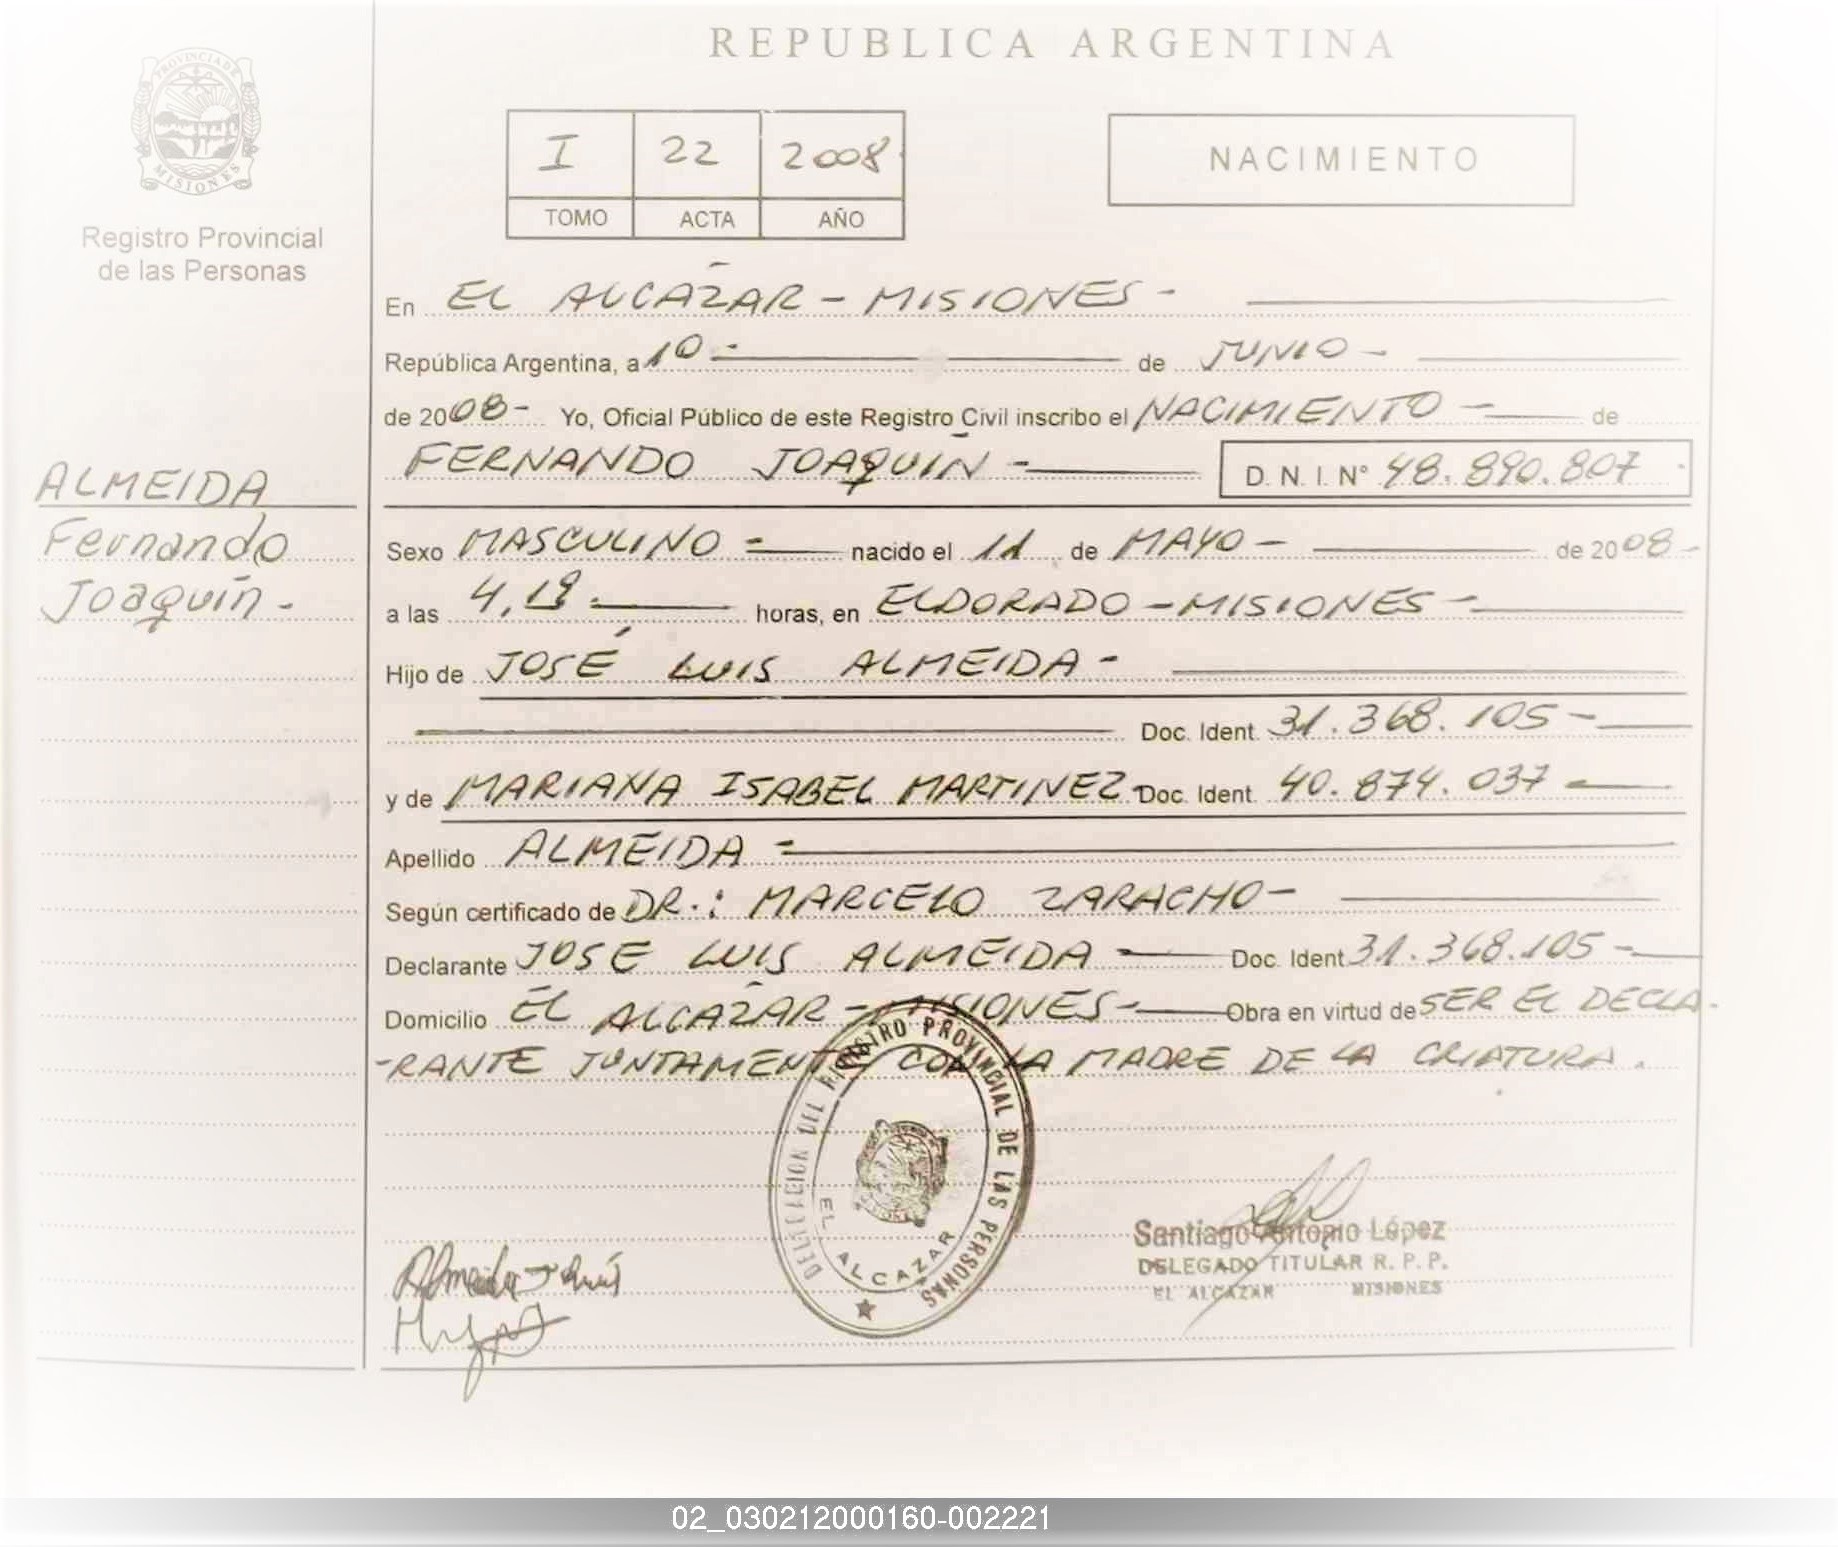 REPUBLICA ARGENTINA
PROVINCIA DE
MISIONES
Registro Provincial
de las Personas
I 22 2008
TOMO ACTA AÑO
NACIMIENTO
En EL ALCAZAR - MISIONES -
República Argentina, a 10 - de JUNIO -
de 2008 - Yo, Oficial Público de este Registro Civil inscribo el NACIMIENTO - de
FERNANDO JOAQUÍN - D. N. I. N° 48.890.807
ALMEIDA
Fernando
Joaquín -
Sexo MASCULINO - nacido el 11 de MAYO - de 2008 -
a las 4,19 - horas, en ELDORADO - MISIONES -
Hijo de JOSÉ LUIS ALMEIDA -
Doc. Ident. 31.368.105 -
y de MARIANA ISABEL MARTINEZ - Doc. Ident. 40.874.037 -
Apellido ALMEIDA -
Según certificado de DR.: MARCELO ZARACHO -
Declarante JOSE LUIS ALMEIDA - Doc. Ident 31.368.105 -
Domicilio EL ALCAZAR - MISIONES - Obra en virtud de SER EL DECLA-
-RANTE JUNTAMENTE CON LA MADRE DE LA CRIATURA.
DELEGACION DEL REGISTRO PROVINCIAL DE LAS PERSONAS
EL ALCAZAR
Santiago Antonio López
DELEGADO TITULAR R. P. P.
EL ALCAZAR MISIONES
Almeida J Luis
02_030212000160-002221